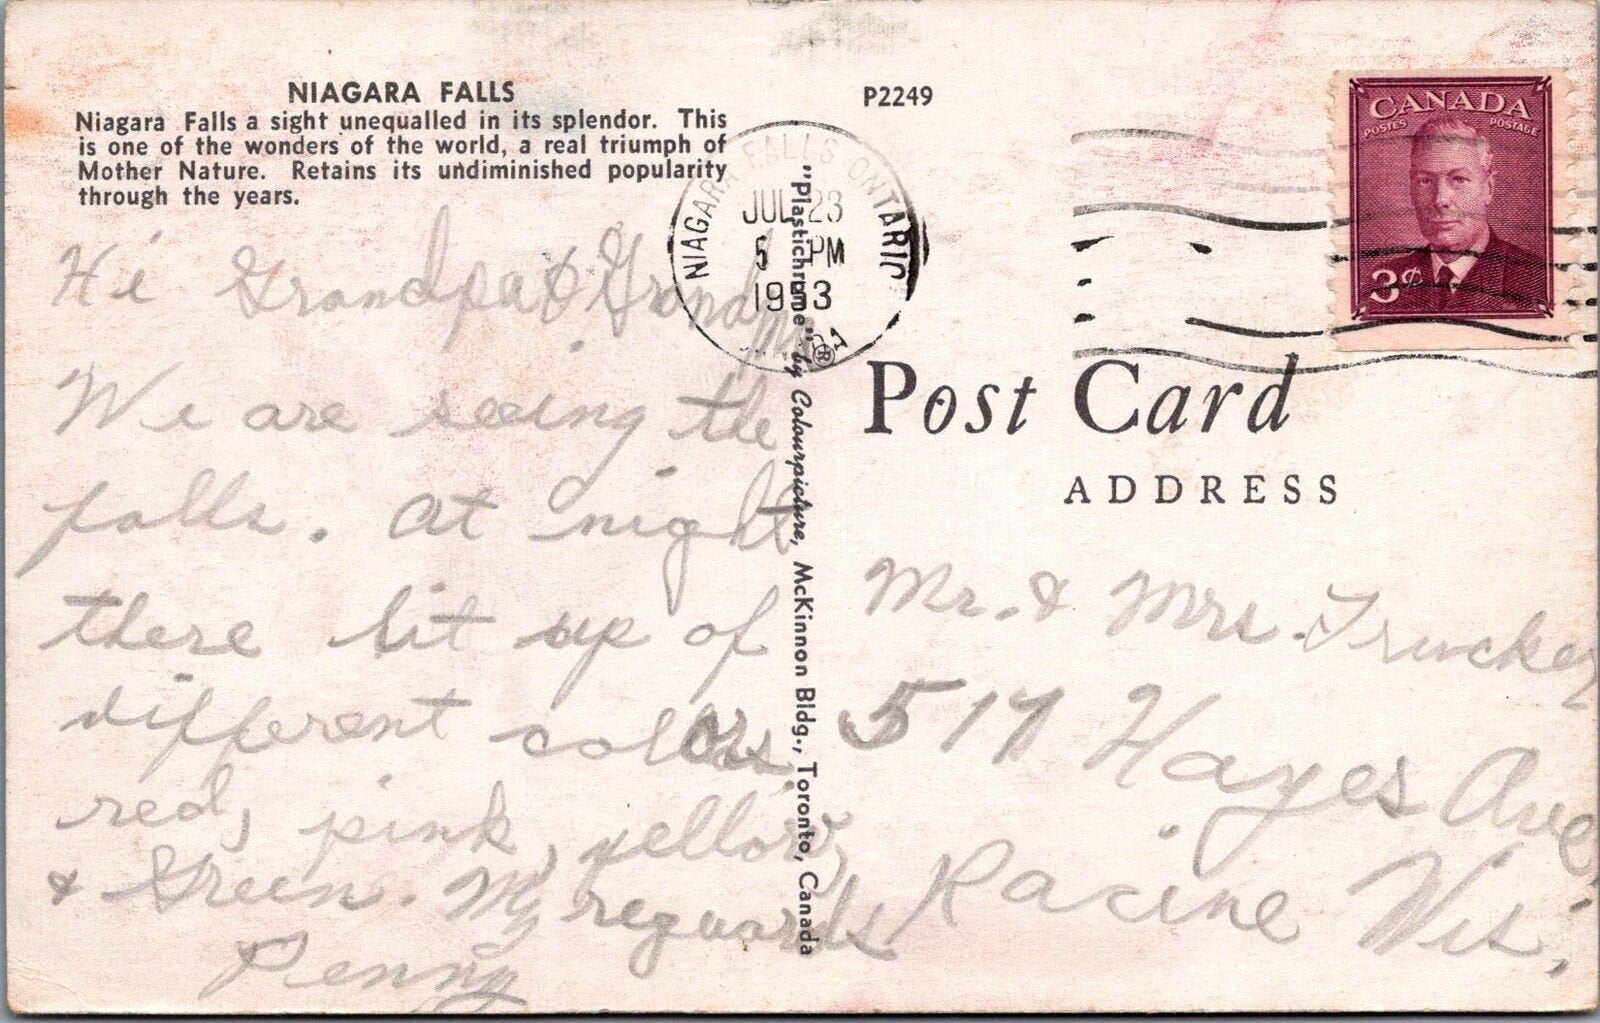 NIAGARA FALLS
Niagara Falls a sight unequalled in its splendor. This
is one of the wonders of the world, a real triumph of
Mother Nature. Retains its undiminished popularity
through the years.
P2249
NIAGARA FALLS ONTARIO
JUL 23
5 PM
CANADA
POSTES POSTAGE
3¢
Hi Grandpa & Grandma
We are seeing the
falls. At night
there lit up of
different colors
red, pink, yellow,
& Green. My reguards
Penny
"Plastichrome" ® by Colourpicture, McKinnon Bldg., Toronto, Canada
Post Card
ADDRESS
Mr. & Mrs. Truckey
517 Hayes Ave,
Racine Wis.